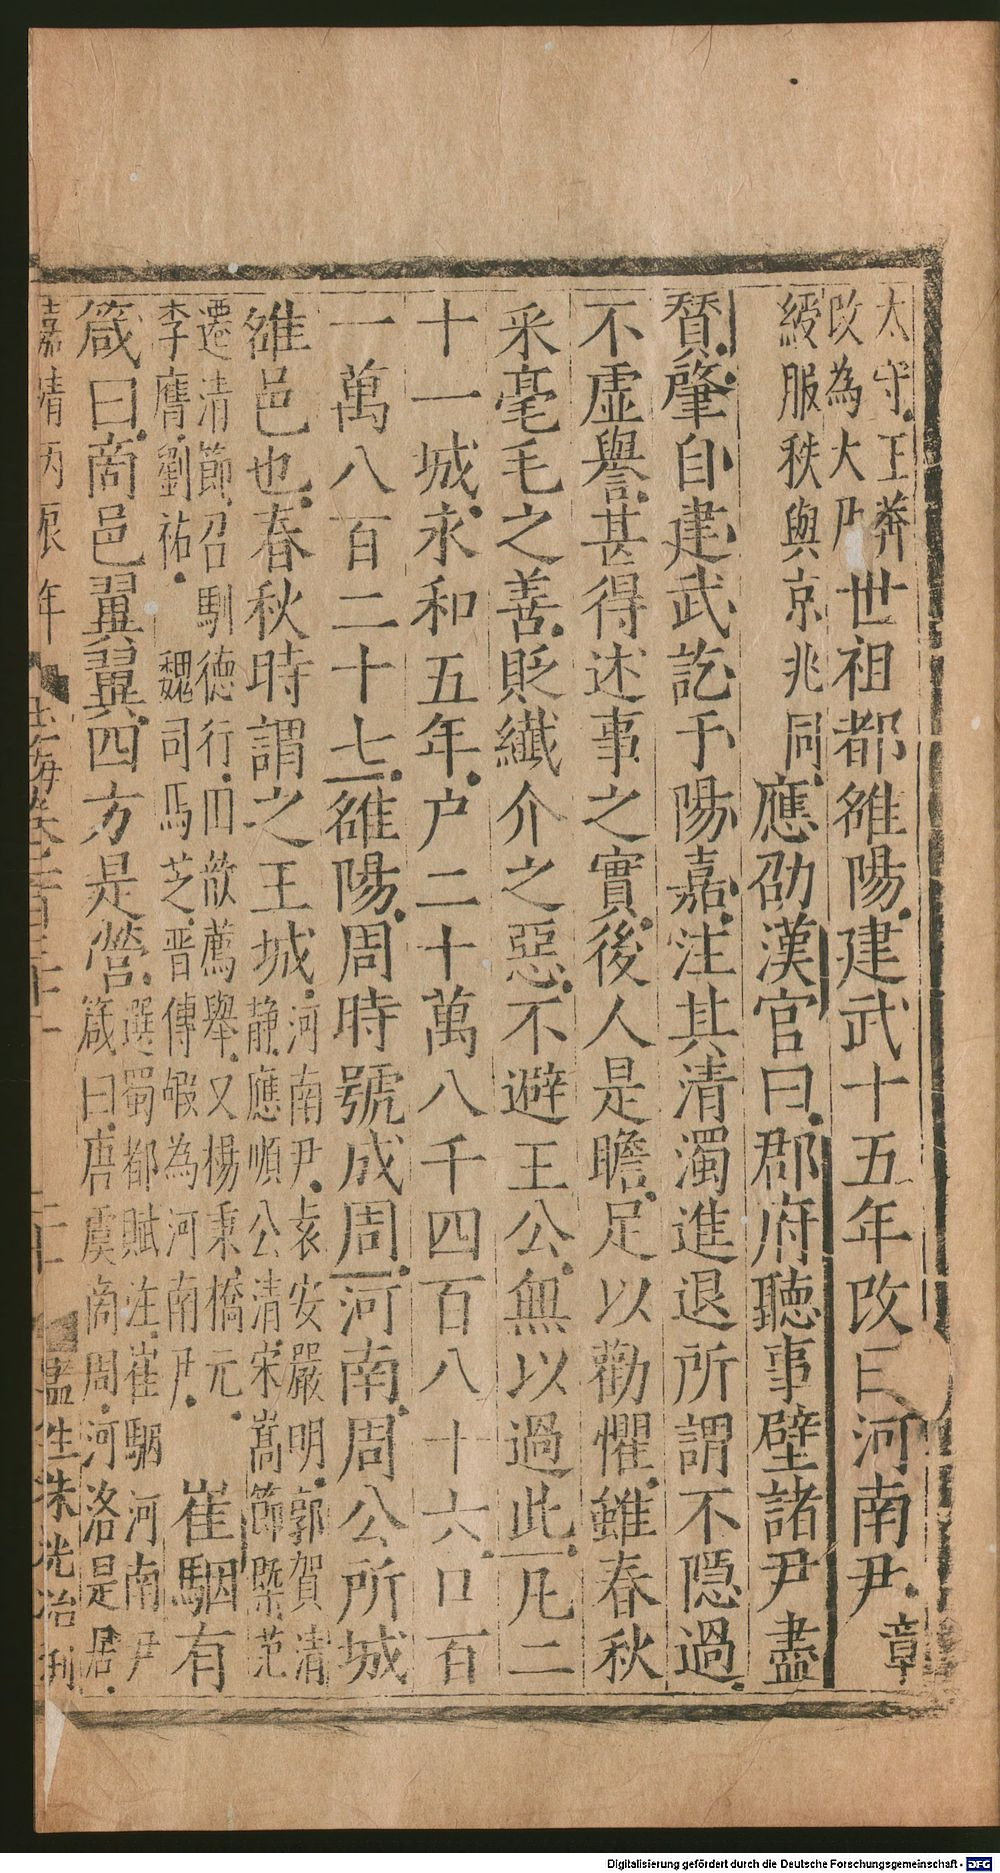 太守王莽改為大尹世祖都雒陽建武十五年改曰河南尹章
綬服秩與京兆同應劭漢官曰郡府聽事壁諸尹畫
贊肇自建武訖于陽嘉注其清濁進退所謂不隱過
不虛譽甚得述事之實後人是瞻足以勸懼雖春秋
采毫毛之善貶纖介之惡不避王公無以過此凡二
十一城永和五年户二十萬八千四百八十六口百
一萬八百二十七雒陽周時號成周河南周公所城
雒邑也春秋時謂之王城河南尹袁安嚴明郭賀清
靜應順公清宋嵩節槩范
遷清節召馴德行田歆薦舉又楊秉橋元
李膺劉祐魏司馬芝晉傅嘏為河南尹崔駰有
箴曰商邑翼翼四方是營選蜀都賦注崔駰河南尹
箴曰唐虞商周河洛是居
嘉靖丙辰年
玉海卷
監生朱光治刊
Digitalisierung gefördert durch die Deutsche Forschungsgemeinschaft - DFG